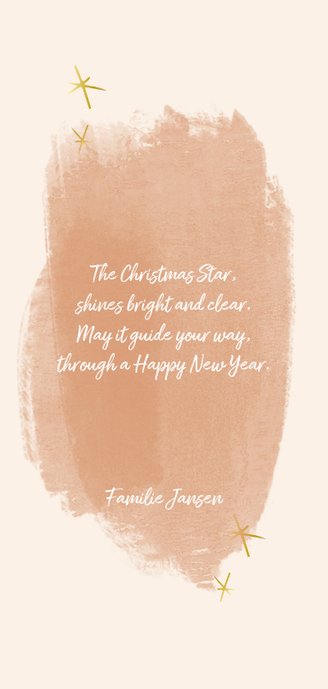 The Christmas Star,
shines bright and clear.
May it guide your way,
through a Happy New Year.
Familie Jansen